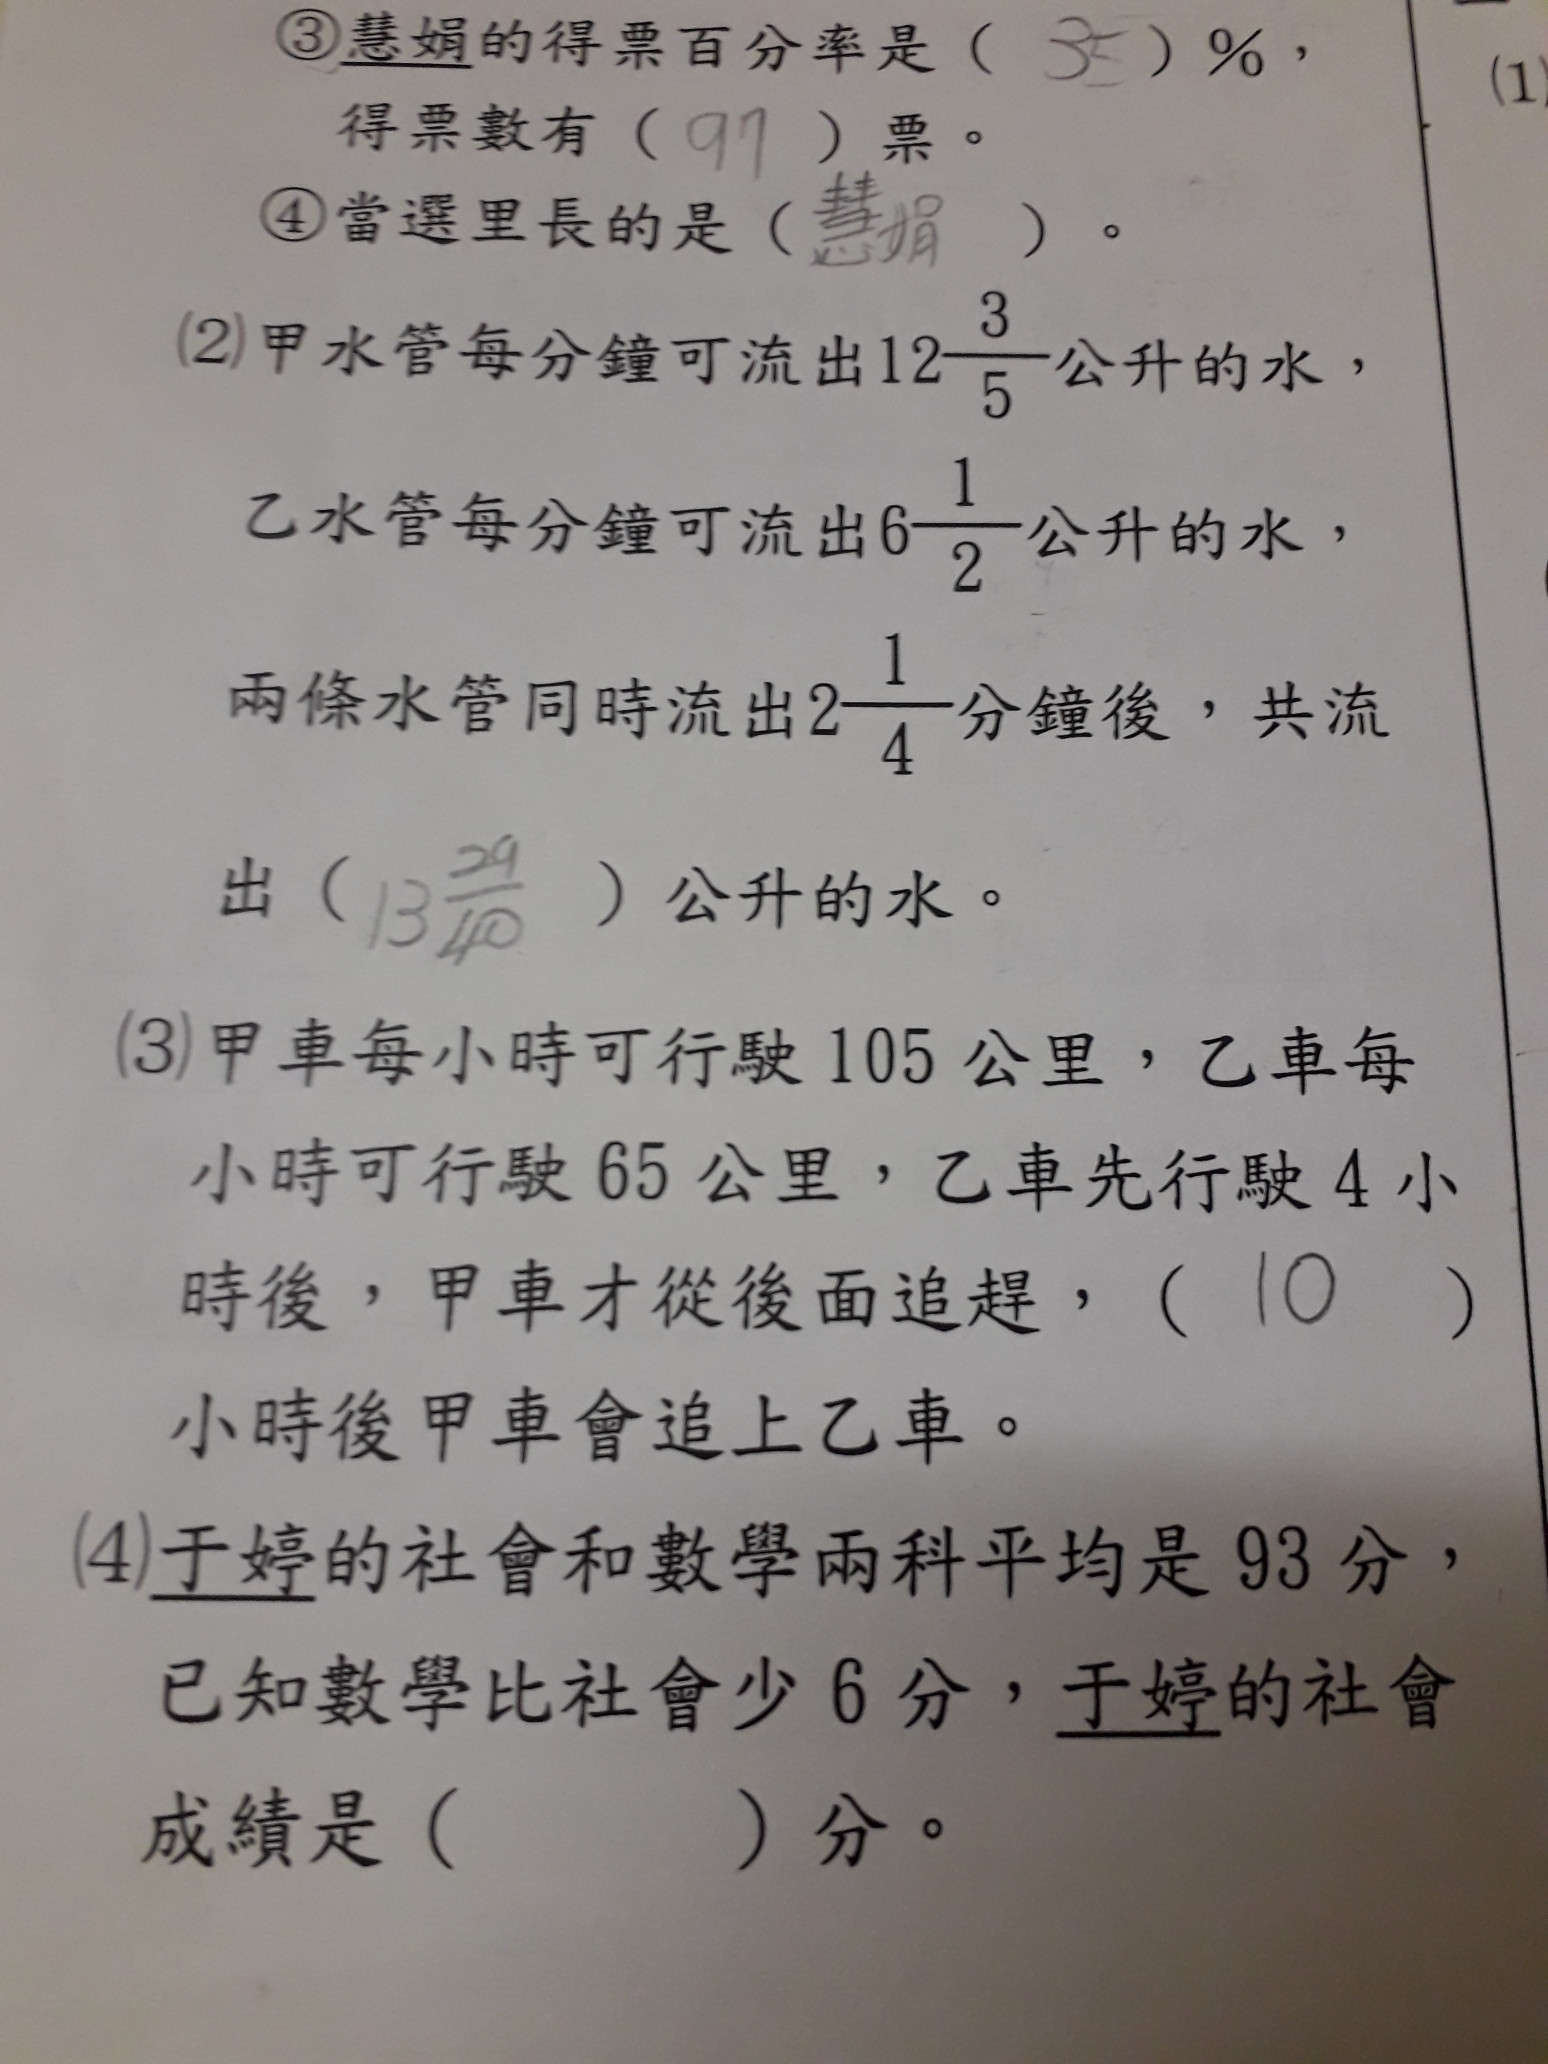 ③慧娟的得票百分率是( 35 )%，
(1)
得票數有( 97 )票。
④當選里長的是(慧娟 )。
(2)甲水管每分鐘可流出12 3/5公升的水，
乙水管每分鐘可流出6 1/2公升的水，
兩條水管同時流出2 1/4分鐘後，共流
出( 13 29/40 )公升的水。
(3)甲車每小時可行駛105公里，乙車每
小時可行駛65公里，乙車先行駛4小
時後，甲車才從後面追趕，( 10 )
小時後甲車會追上乙車。
(4)于婷的社會和數學兩科平均是93分，
已知數學比社會少6分，于婷的社會
成績是( )分。